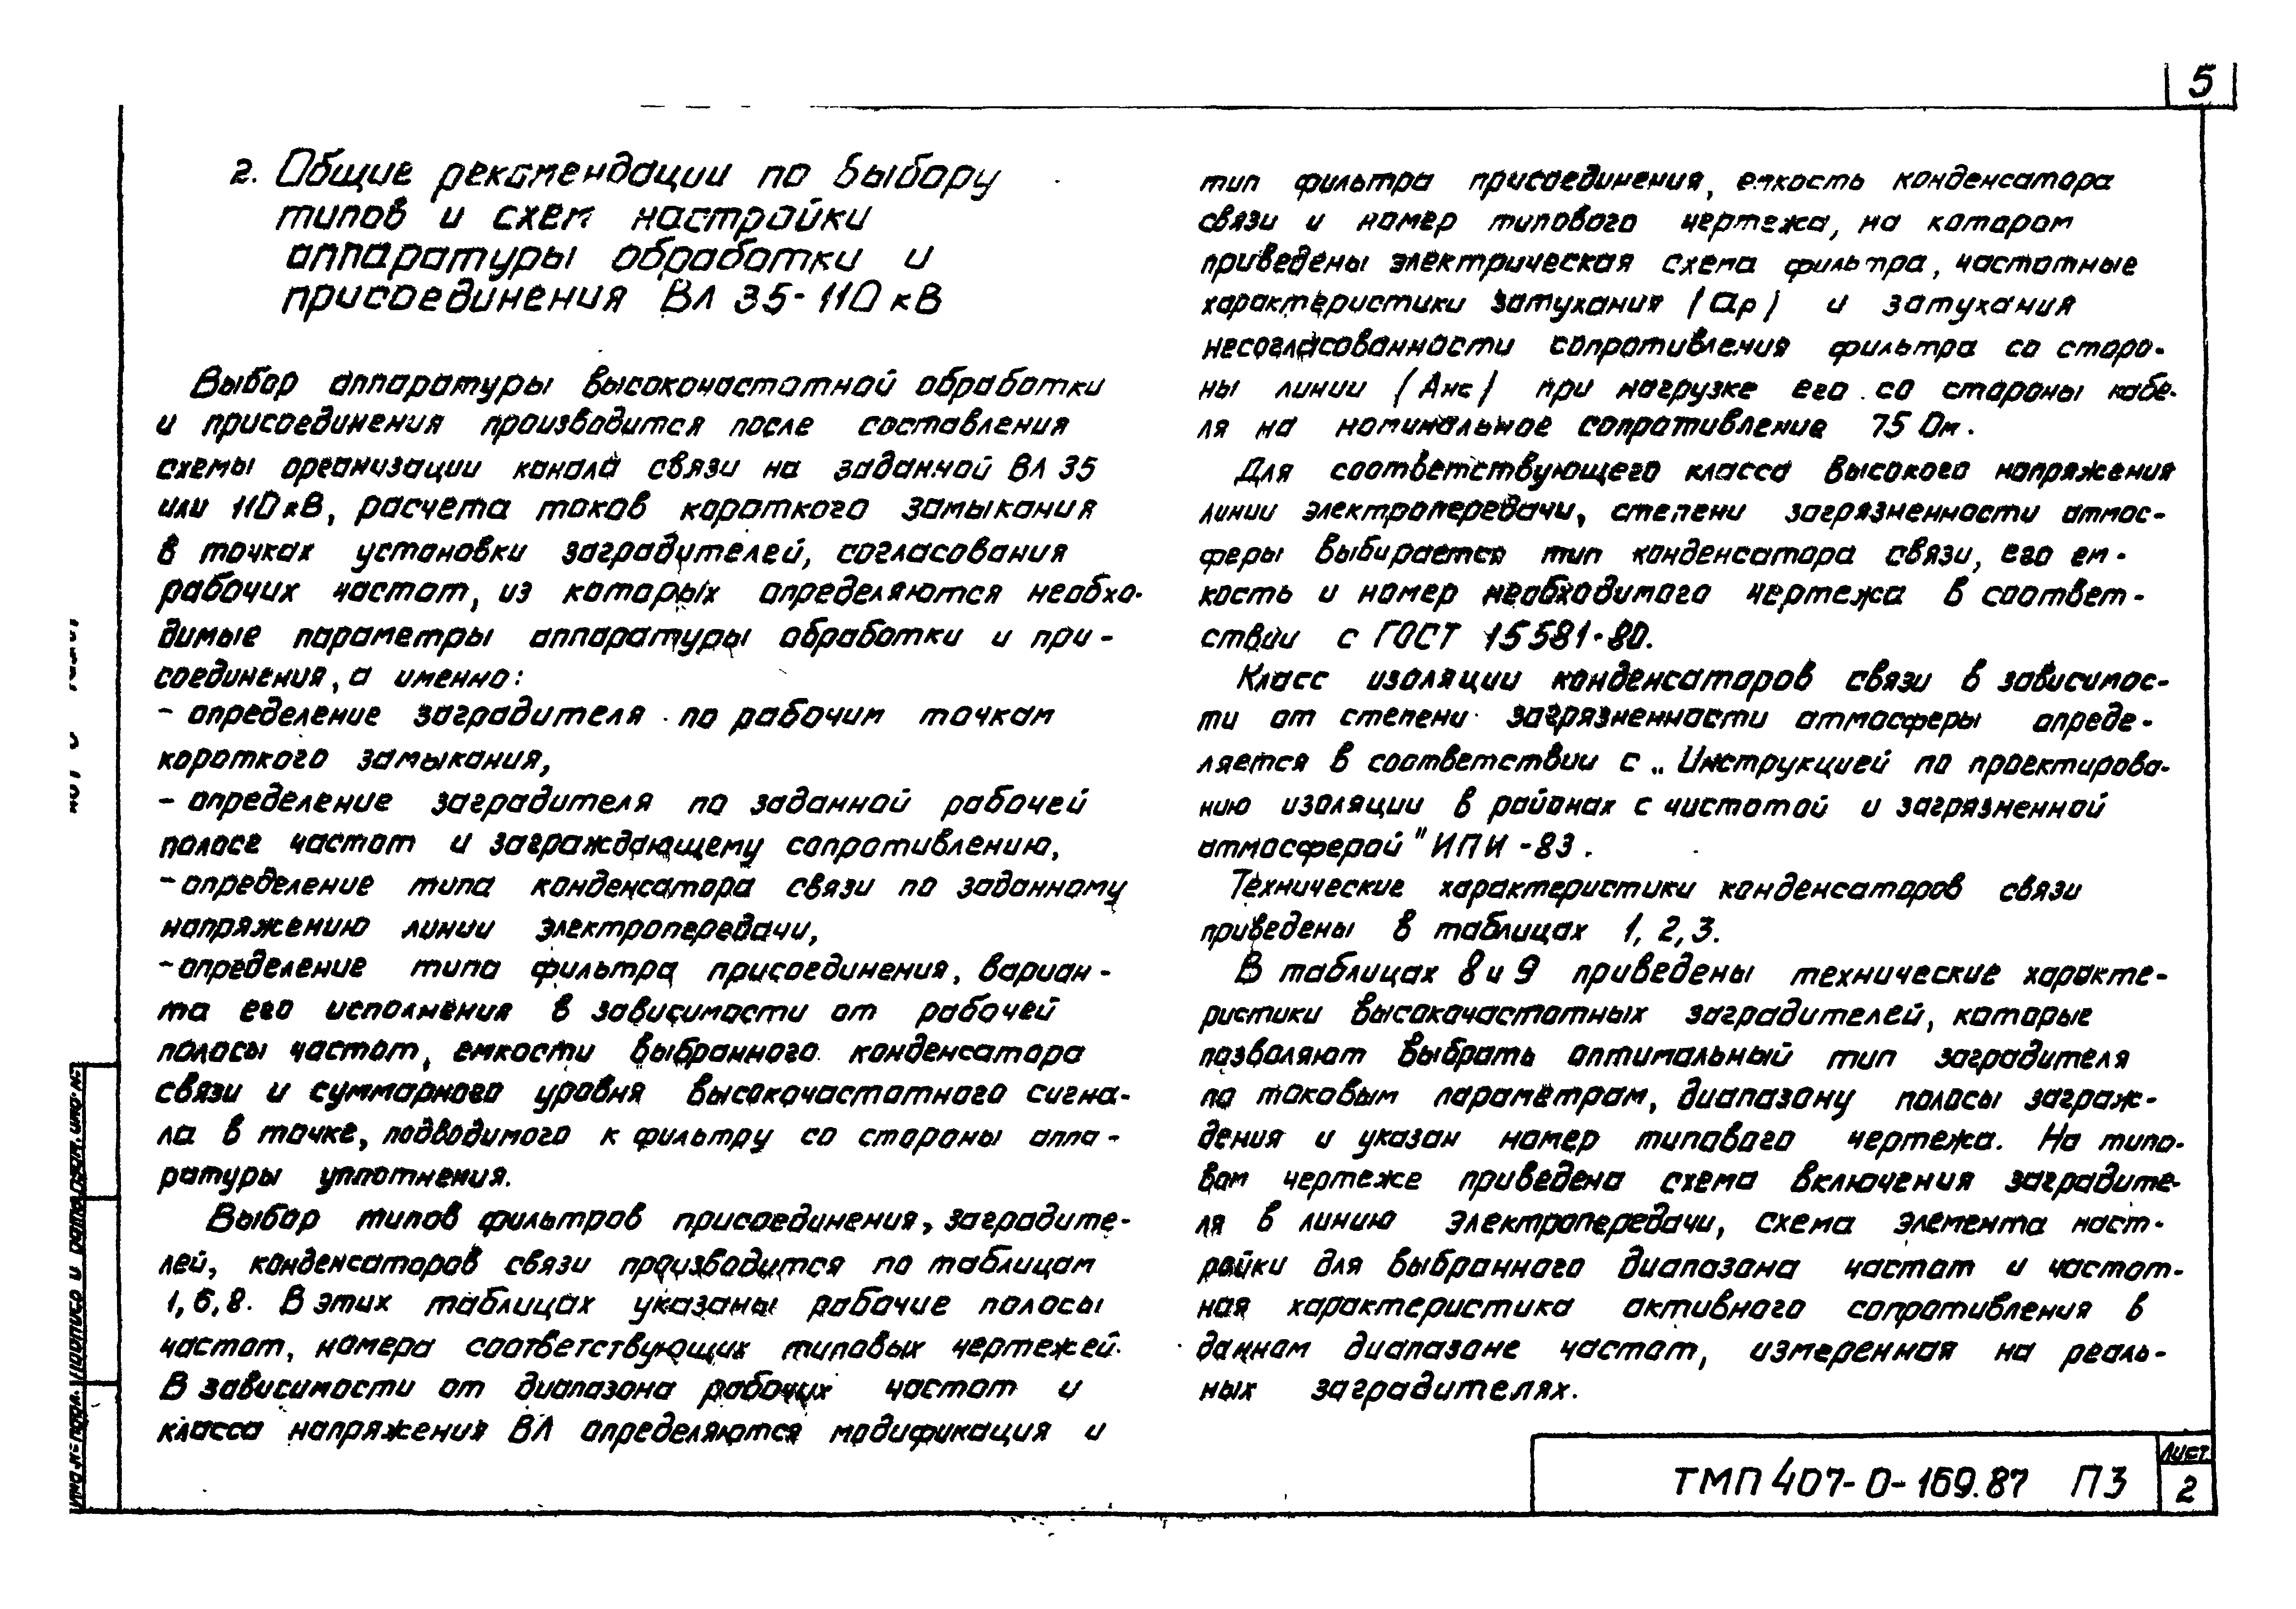 5
2. Общие рекомендации по выбору
типов и схем настройки
аппаратуры обработки и
присоединения ВЛ 35-110 кВ
Выбор аппаратуры высокочастотной обработки
и присоединения производится после составления
схемы организации канала связи на заданной ВЛ 35
или 110 кВ, расчета токов короткого замыкания
в точках установки заградителей, согласования
рабочих частот, из которых определяются необхо-
димые параметры аппаратуры обработки и при-
соединения, а именно:
- определение заградителя по рабочим точкам
короткого замыкания,
- определение заградителя по заданной рабочей
полосе частот и заграждающему сопротивлению,
- определение типа конденсатора связи по заданному
напряжению линии электропередачи,
- определение типа фильтра присоединения, вариан-
та его исполнения в зависимости от рабочей
полосы частот, емкости выбранного конденсатора
связи и суммарного уровня высокочастотного сигна-
ла в точке, подводимого к фильтру со стороны аппа-
ратуры уплотнения.
Выбор типов фильтров присоединения, заградите-
лей, конденсаторов связи производится по таблицам
1, 6, 8. В этих таблицах указаны рабочие полосы
частот, номера соответствующих типовых чертежей.
В зависимости от диапазона рабочих частот и
класса напряжения ВЛ определяются модификация и
тип фильтра присоединения, емкость конденсатора
связи и номер типового чертежа, на котором
приведены электрическая схема фильтра, частотные
характеристики затухания (ар) и затухания
несогласованности сопротивления фильтра со сторо-
ны линии (Анс) при нагрузке его со стороны кабе-
ля на номинальное сопротивление 75 Ом.
Для соответствующего класса высокого напряжения
линии электропередачи, степени загрязненности атмос-
феры выбирается тип конденсатора связи, его ем-
кость и номер необходимого чертежа в соответ-
ствии с ГОСТ 15581-80.
Класс изоляции конденсаторов связи в зависимос-
ти от степени загрязненности атмосферы опреде-
ляется в соответствии с „Инструкцией по проектирова-
нию изоляции в районах с чистотой и загрязненной
атмосферой" ИПИ-83.
Технические характеристики конденсаторов связи
приведены в таблицах 1, 2, 3.
В таблицах 8 и 9 приведены технические характе-
ристики высокочастотных заградителей, которые
позволяют выбрать оптимальный тип заградителя
по токовым параметрам, диапазону полосы заграж-
дения и указан номер типового чертежа. На типо-
вом чертеже приведена схема включения заградите-
ля в линию электропередачи, схема элемента наст-
ройки для выбранного диапазона частот и частот-
ная характеристика активного сопротивления в
данном диапазоне частот, измеренная на реаль-
ных заградителях.
ТМП 407-0-169.87 ПЗ
Лист
2
Инв.№ подл. Подпись и дата Взам. инв.№